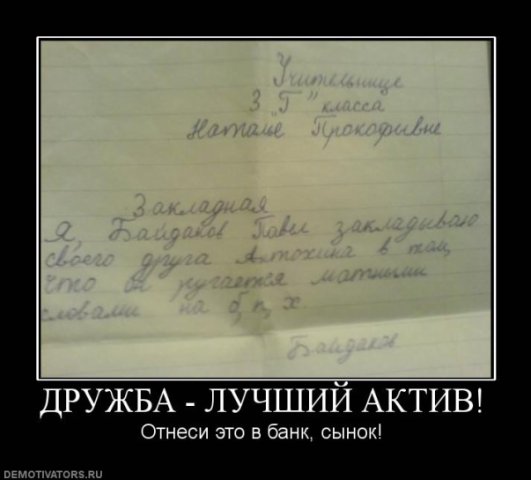 Учительнице
3 "Г" класса
Наталье Прокофивне
Закладная
Я, Байдаков Павел закладываю
своего друга Антохина в том,
что он ругается матными
словами на б, п, х.
Байдаков
ДРУЖБА - ЛУЧШИЙ АКТИВ!
Отнеси это в банк, сынок!
DEMOTIVATORS.RU